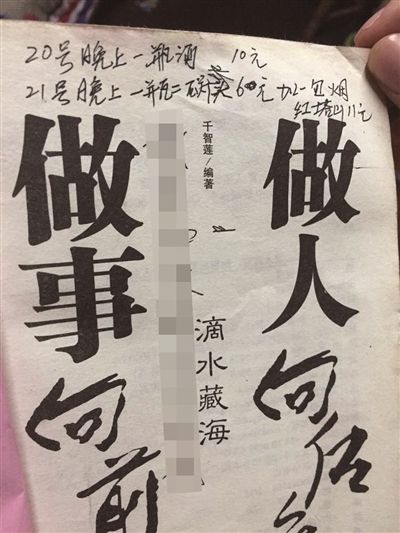 20号晚上一瓶酒 10元
21号晚上一瓶二 6元 加一包烟
红塔山11元
做人向后
千智莲/编著
滴水藏海
做事向前